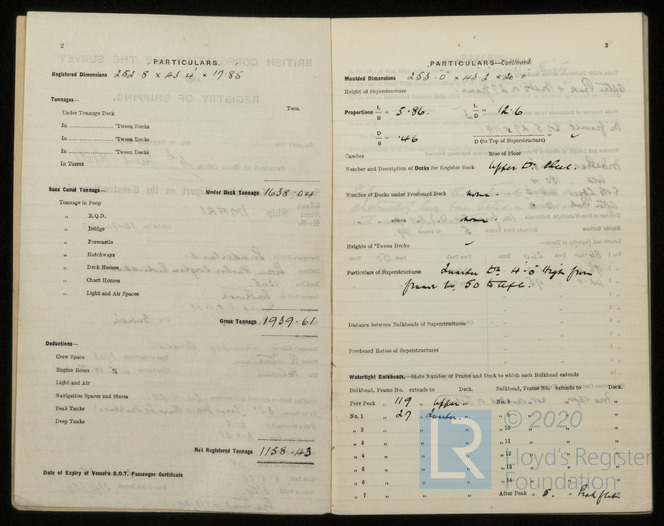 2
PARTICULARS.
Registered Dimensions 252.8 × 43.4 × 19.85
Tonnages—
Tons.
Under Tonnage Deck
In 'Tween Decks
In 'Tween Decks
In 'Tween Decks
In Turret
Suez Canal Tonnage— Under Deck Tonnage 1638.04
Tonnage in Poop
„ R.Q.D.
„ Bridge
„ Forecastle
„ Hatchways
„ Deck Houses
„ Chart Houses
„ Light and Air Spaces
Gross Tonnage 1939.61
Deductions—
Crew Space
Engine Room %
Light and Air
Navigation Spaces and Stores
Peak Tanks
Deep Tanks
Net Registered Tonnage 1158.43
Date of Expiry of Vessel's B.O.T. Passenger Certificate
3
PARTICULARS—Continued.
Moulded Dimensions 253.0 × 43.2 × 20.0
Height of Superstructure
Proportions L/B = 5.86. L/D = 12.6
D/B = .46
D (to Top of Superstructure)
Camber Rise of Floor
Number and Description of Decks for Register Book Upper Dk. Steel.
Number of Decks under Freeboard Deck none.
„ „ above „ none.
Heights of 'Tween Decks
Particulars of Superstructures Dk. 4-0 high from
frame No. 50 to aft.
Distance between Bulkheads of Superstructures
Freeboard Ratios of Superstructures
Watertight Bulkheads.—State Number of Frame and Deck to which each Bulkhead extends
Bulkhead, Frame No. extends to Deck. Bulkhead, Frame No. extends to Deck.
Fore Peak „ 119 „ Upper „ No. 8 „ „
No. 1 „ 27 „ „ 9 „ „
„ 2 „ „ „ 10 „ „
„ 3 „ „ „ 11
„ 4 „ „ „ 12
„ 5 „ „ „ 13
„ 6 „ „ „ 14
„ 7 „ „ After Peak „ 5. „ Peak flat
LR © 2020
Lloyd's Register
Foundation